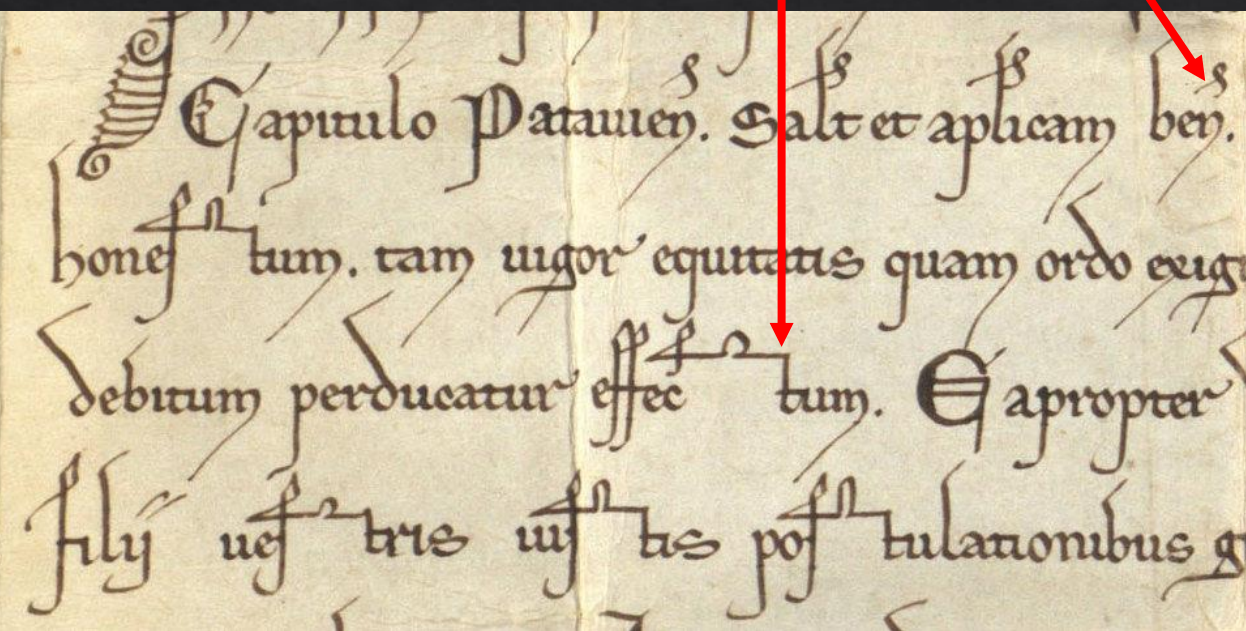 Capitulo Patauien̄. Sal̄t et ap̄licam ben̄.
honestum. tam uigor equitatis quam ordo exig
debitum perducatur effectum. Eapropter
filij uestris iustis postulationibus g